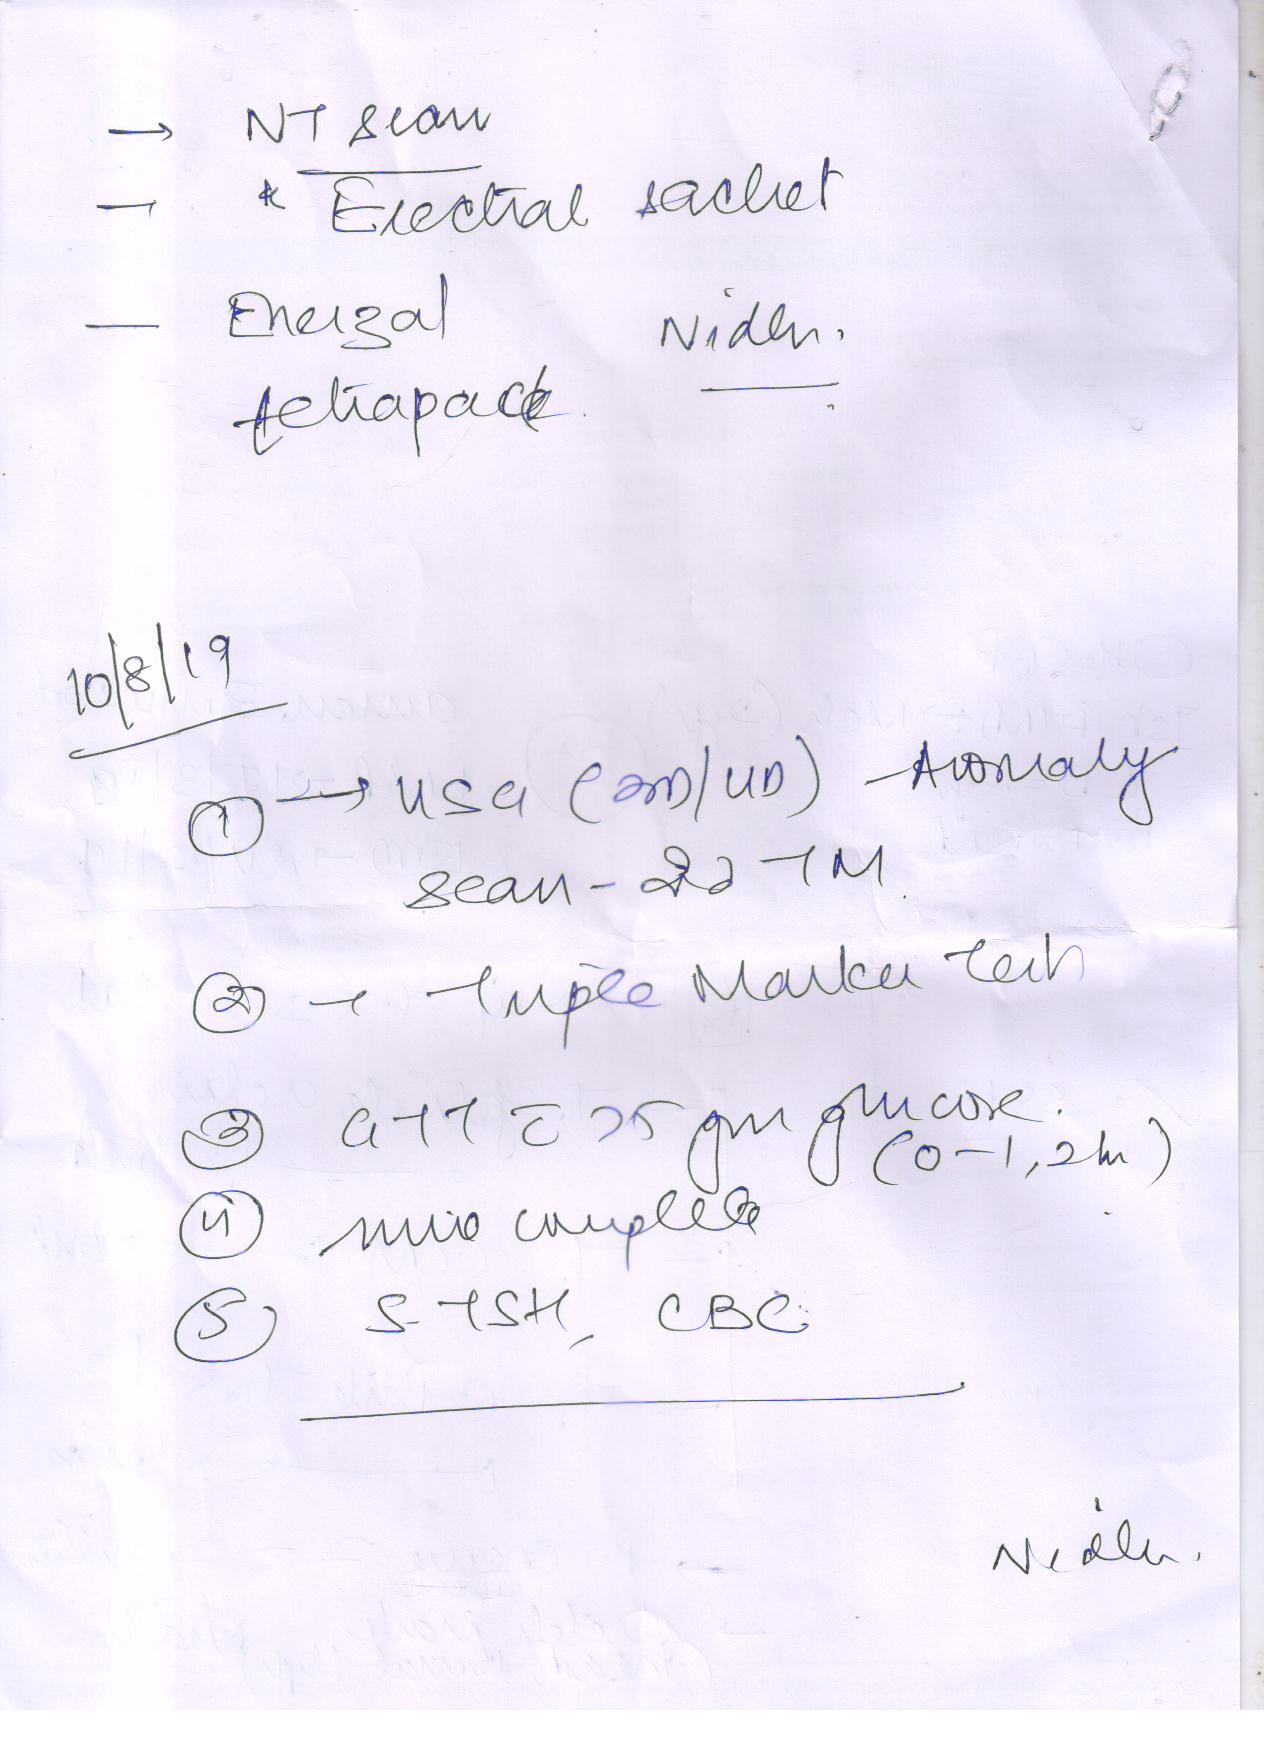 → NT scan
→ * Electral sachet
— Enerzal
Nidhi.
tetrapack.
10/8/19
① → USG (3D/4D) Anomaly
scan -
② → Triple Marker Test
③ GTT c̄ 75 gm glucose.
(0-1, 2hr)
④ urine complete
⑤ S-TSH, CBC
Nidhi.